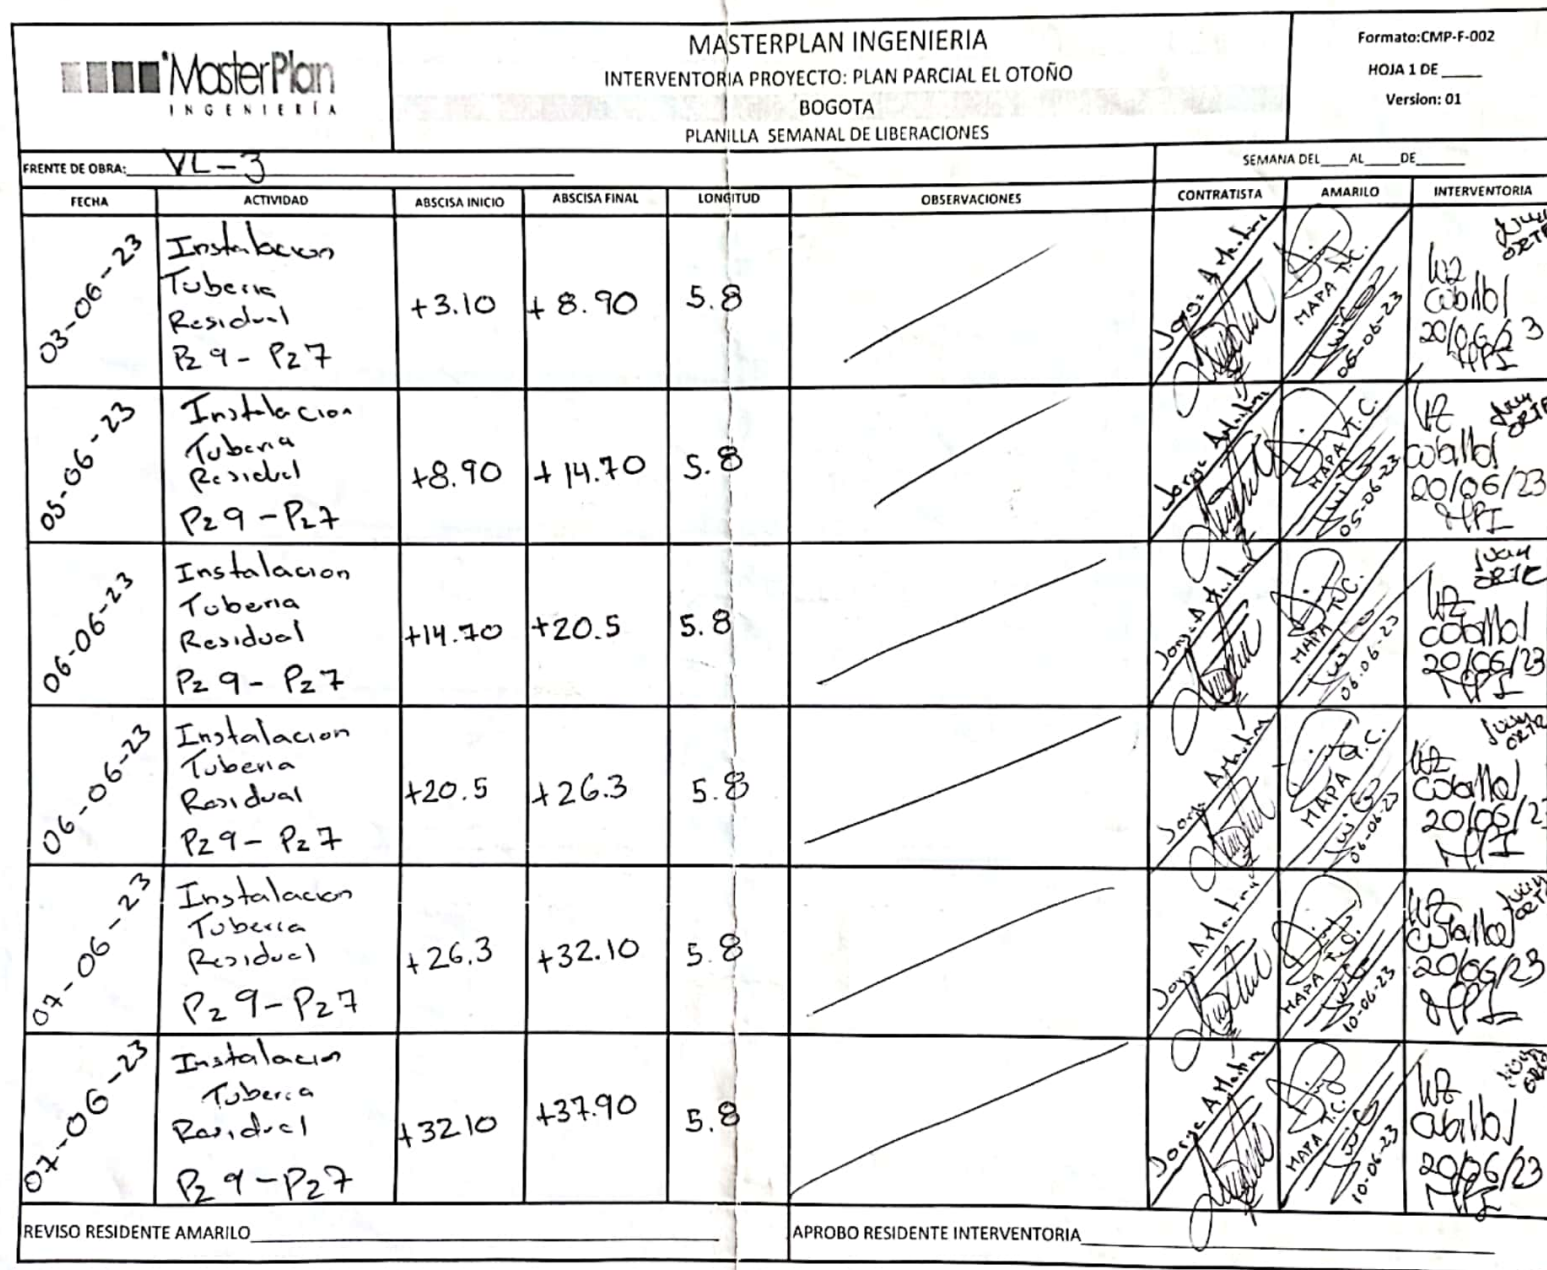 MasterPlan
INGENIERÍA
MASTERPLAN INGENIERIA
INTERVENTORIA PROYECTO: PLAN PARCIAL EL OTOÑO
BOGOTA
PLANILLA SEMANAL DE LIBERACIONES
Formato:CMP-F-002
HOJA 1 DE ____
Version: 01
FRENTE DE OBRA: VL-3
SEMANA DEL____AL____DE____
FECHA ACTIVIDAD ABSCISA INICIO ABSCISA FINAL LONGITUD OBSERVACIONES CONTRATISTA AMARILO INTERVENTORIA
03-06-23
Instalacion
Tuberia
Residual
Pz 9 - Pz 7
+3.10
+ 8.90
5.8
MAPA T.C.
06-06-23
20/06/23
MPI
05-06-23
Instalacion
Tuberia
Residual
Pz 9 - Pz 7
+8.90
+ 14.70
5.8
Jorge
MAPA T.C.
05-06-23
20/06/23
MPI
06-06-23
Instalacion
Tuberia
Residual
Pz 9 - Pz 7
+14.70
+20.5
5.8
Jorge A
MAPA T.C.
06.06-23
Juan
20/06/23
MPI
06-06-23
Instalacion
Tuberia
Residual
Pz 9 - Pz 7
+20.5
+26.3
5.8
Jorge
MAPA
06-06-23
20/06/23
MPI
07-06-23
Instalacion
Tuberia
Residual
Pz 9 - Pz 7
+26.3
+32.10
5.8
Jorge A
MAPA
10-06-23
20/06/23
MPI
07-06-23
Instalacion
Tuberia
Residual
Pz 9 - Pz 7
+32.10
+37.90
5.8
Jorge A
MAPA T.C.
10-06-23
20/06/23
MPI
REVISO RESIDENTE AMARILO
APROBO RESIDENTE INTERVENTORIA